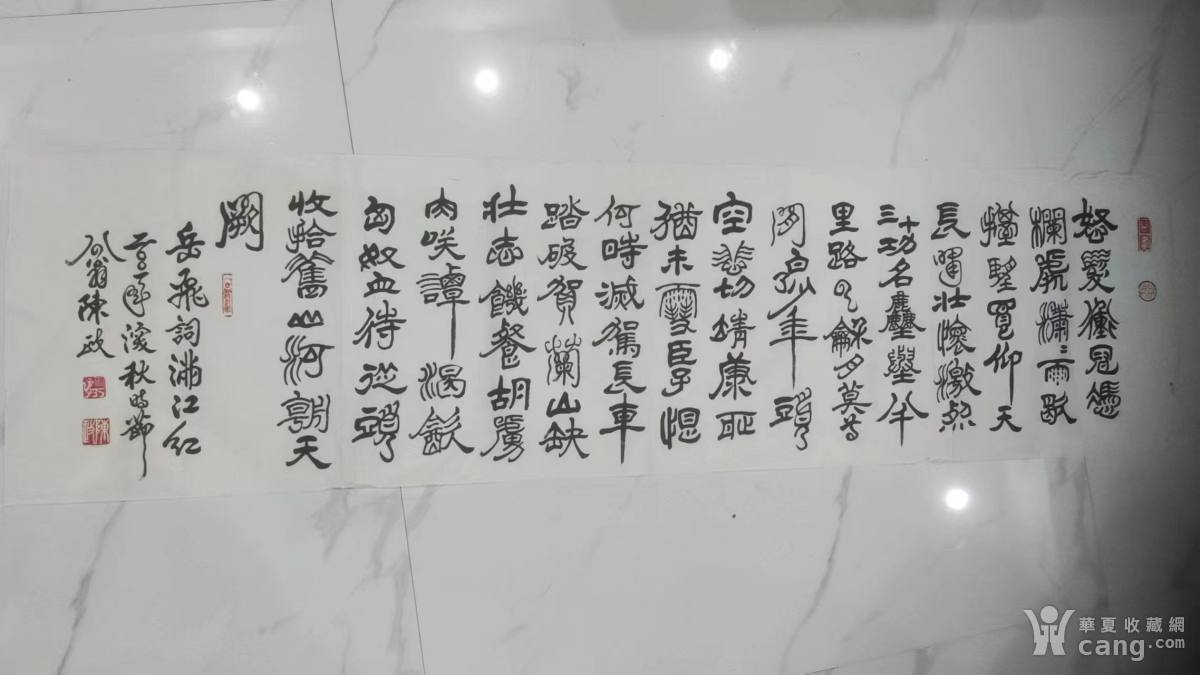 怒髮衝冠憑
欄處瀟〻雨歇
擡望眼仰天
長嘯壯懷激烈
三十功名塵與千
里路雲和月莫等
閒年頭
空悲切靖康恥
猶未雪臣子恨
何時滅駕長車
踏破賀蘭山缺
壯志饑餐胡虜
肉咲譚渴飲
匈奴血待從頭
收拾舊山河朝天
闕
岳飛詞滿江紅
年深秋時節
翁陳政
陳政
華夏收藏網
cang.com